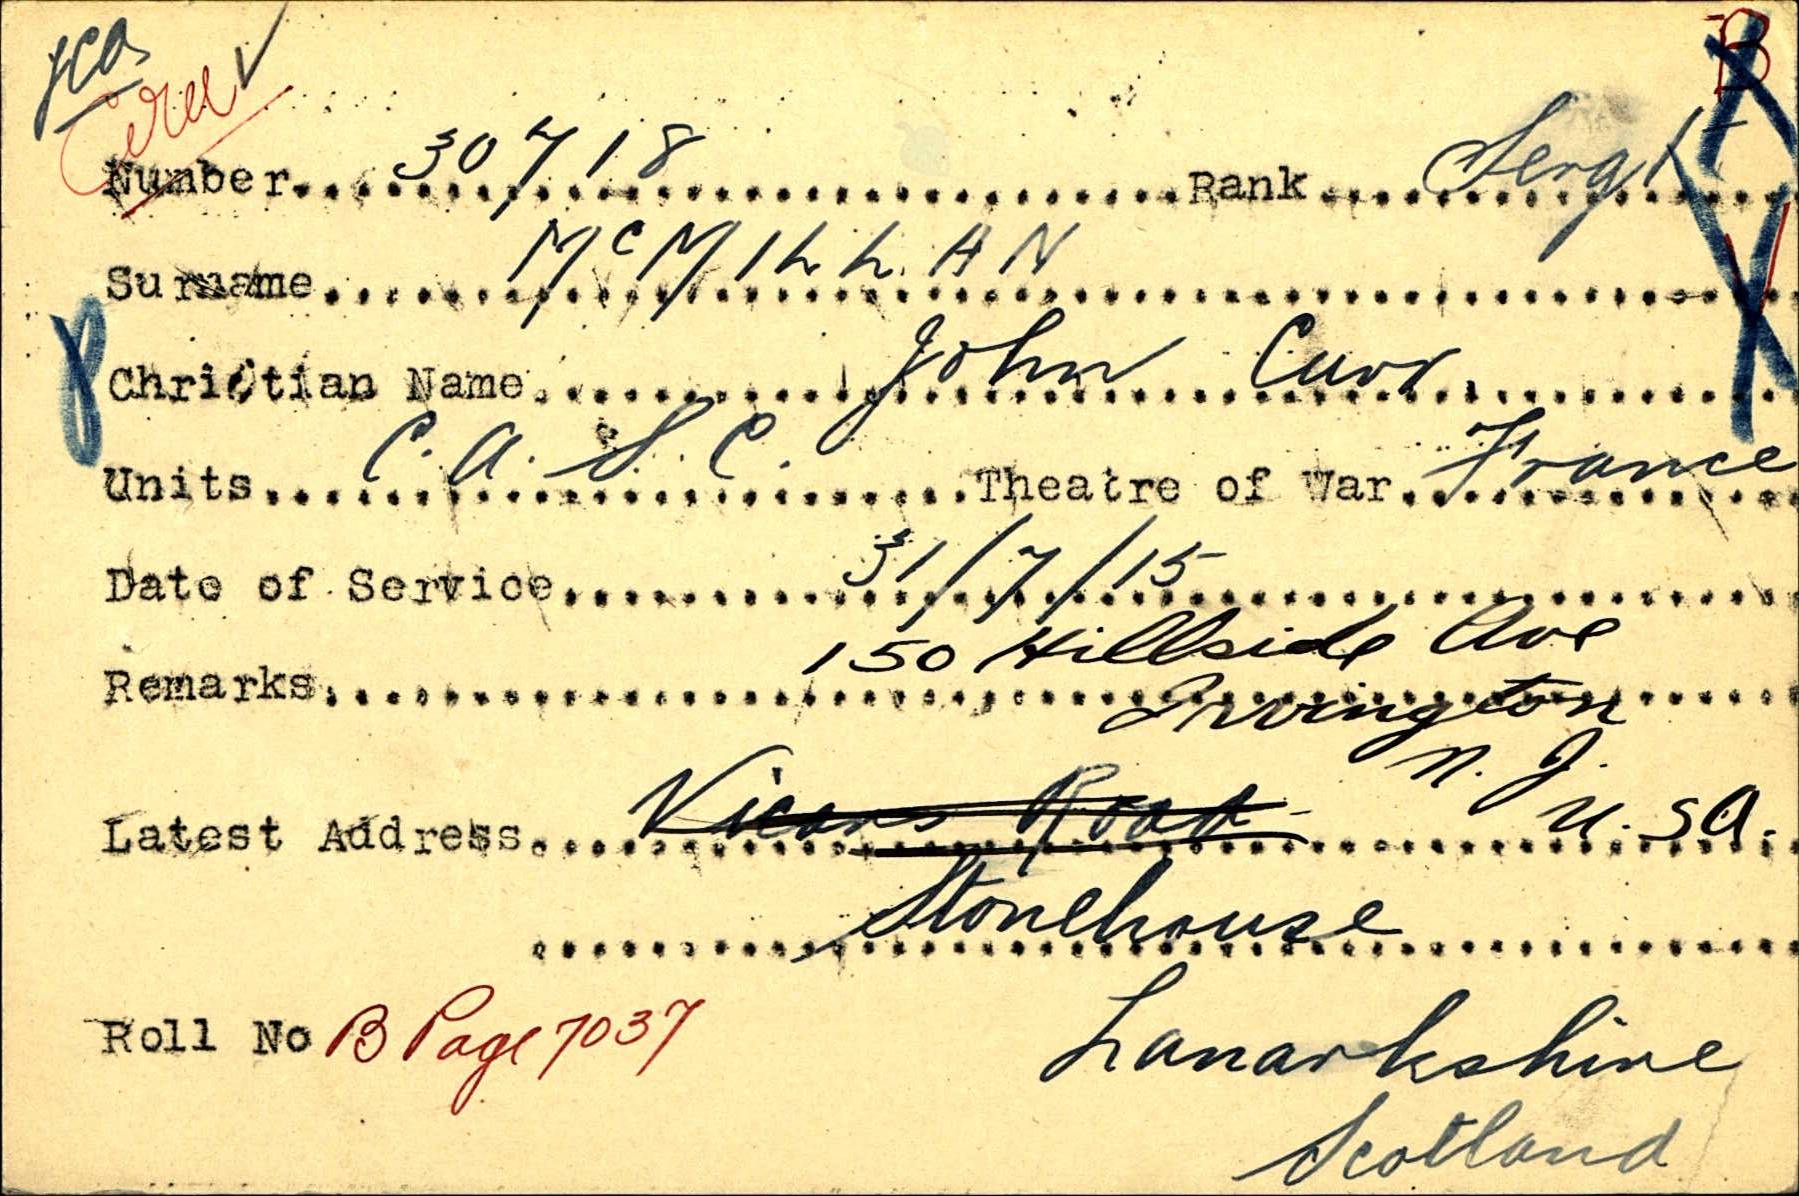 B
Number 30718 Rank Sergt
Surname McMILLAN
Christian Name John Curr
Units C.A.S.C. Theatre of War France
Date of Service 31/7/15
Remarks 150 Hillside Ave
Irvington
N.J.
Latest Address Vicars Road U.SA.
Stonehouse
Roll No B Page 7037 Lanarkshire
Scotland